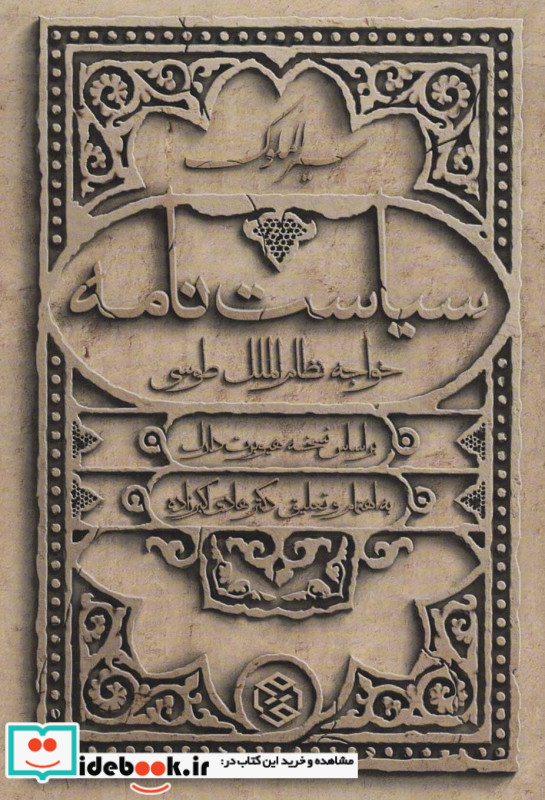 سیرالملوک
سیاست نامه
خواجه نظام الملک طوسی
براساس نسخه هیوبرت دارک
به اهتمام و تعلیق دکتر هادی اکبرزاده
مشاهده و خرید این کتاب در:
idebook.ir